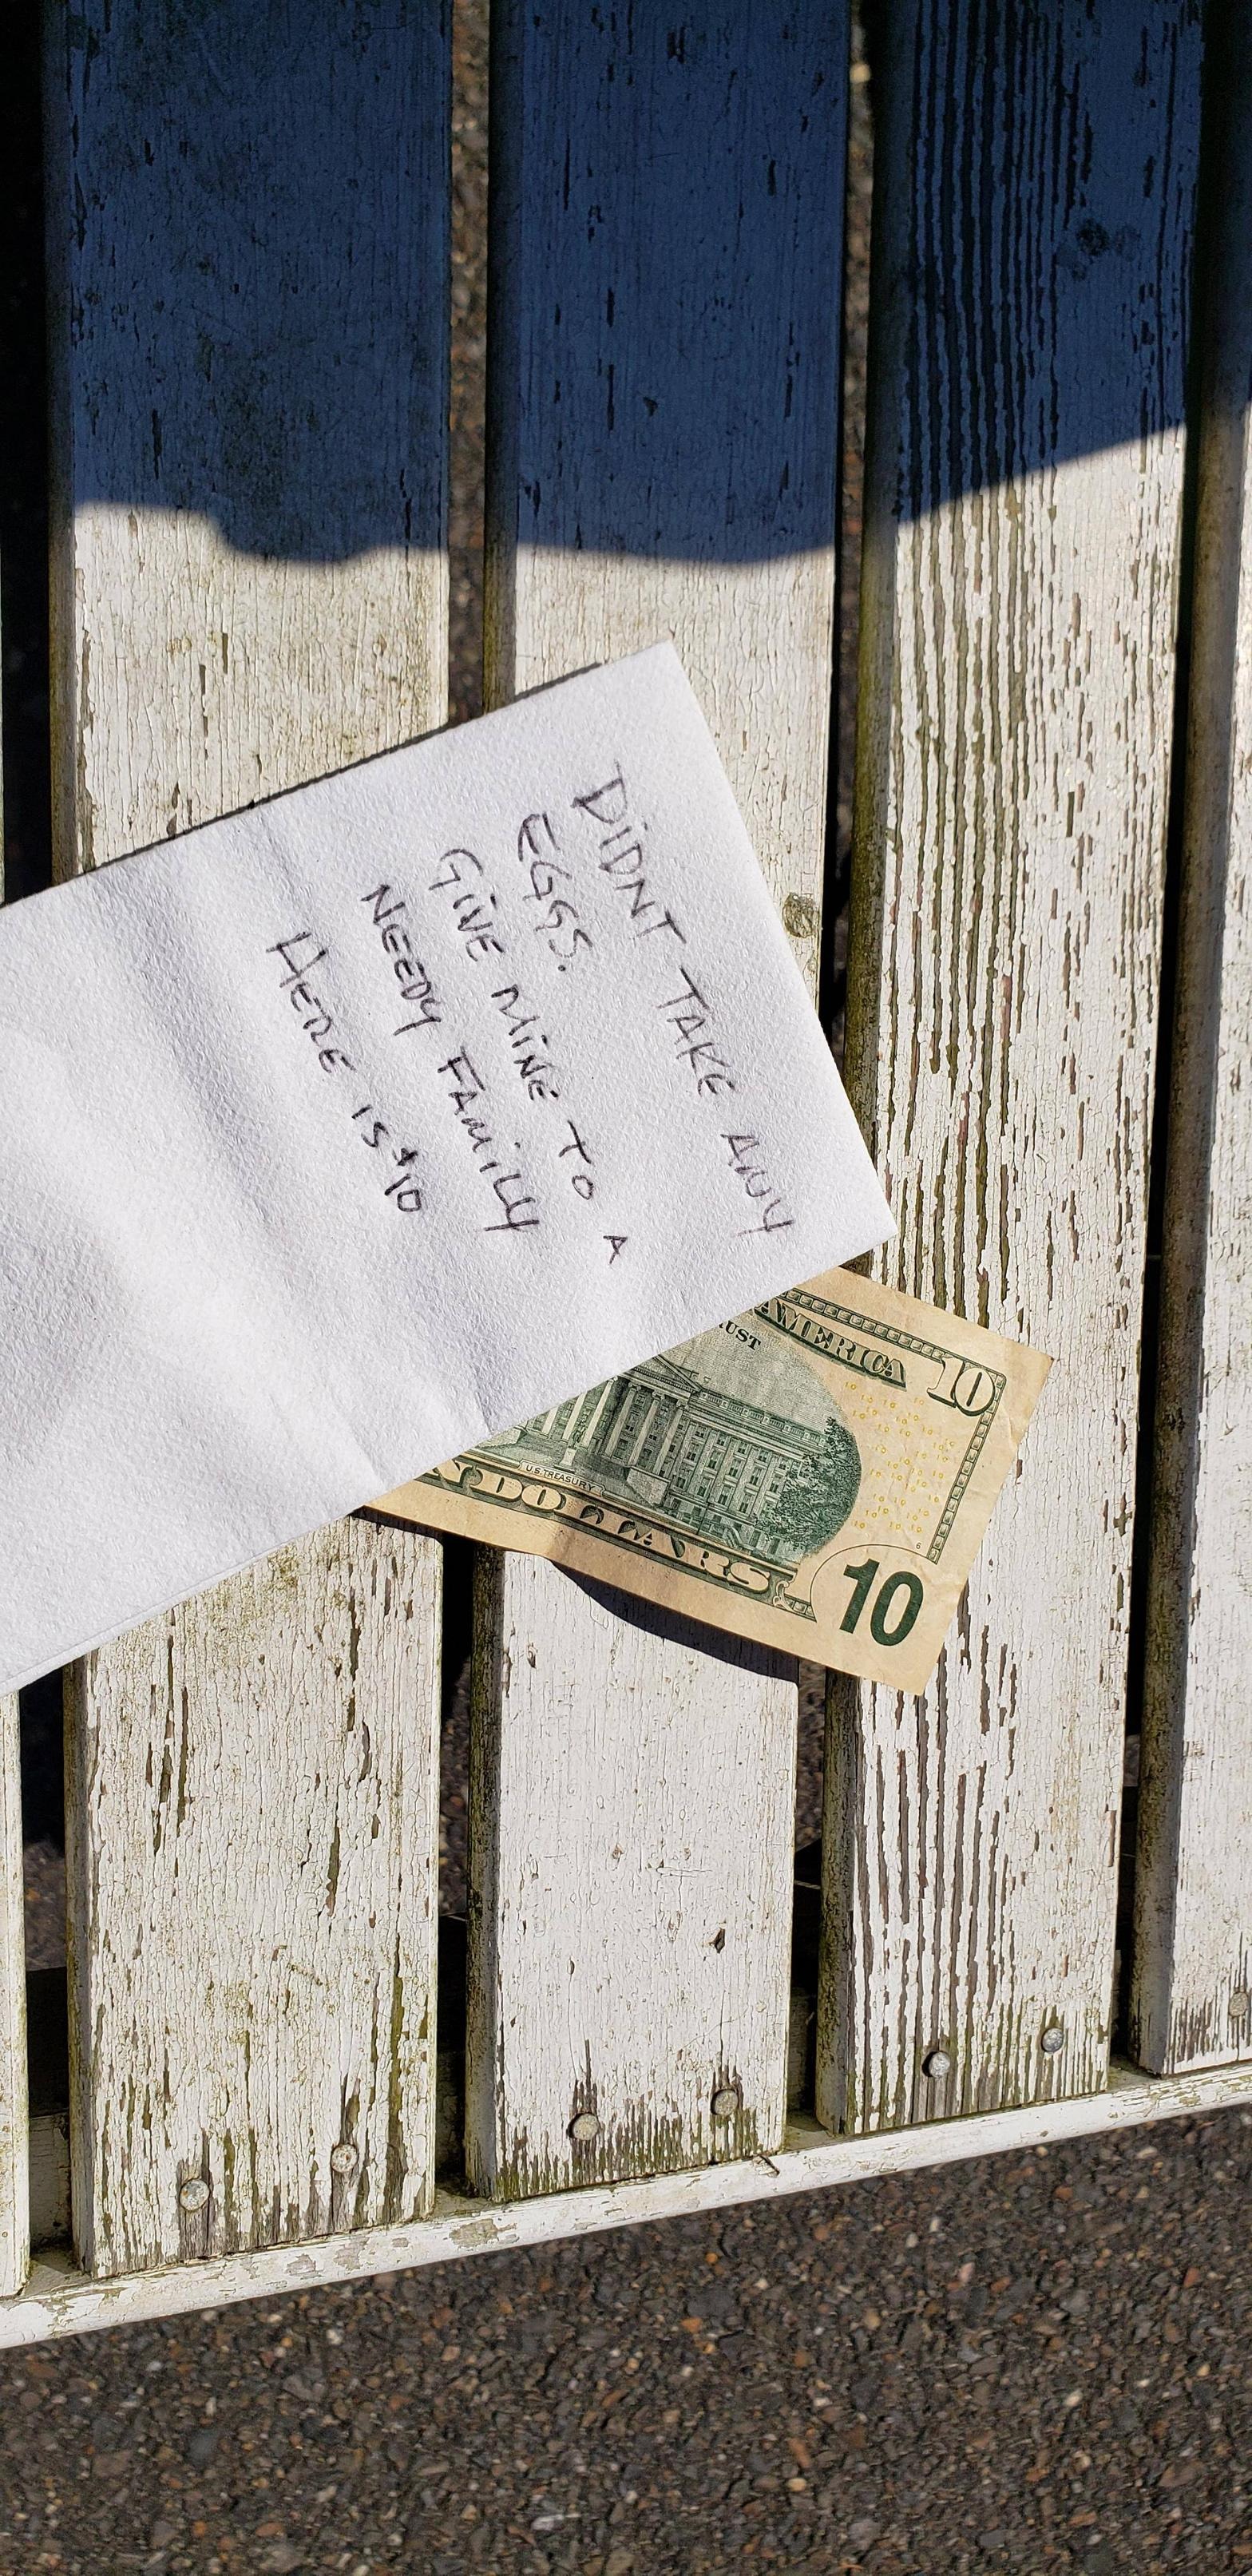 DIDNT TAKE ANY
EGGS.
GIVE MINE TO A
NEEDY FAMILY
HERE IS $10
AMERICA
10
U.S. TREASURY
DOLLARS
10